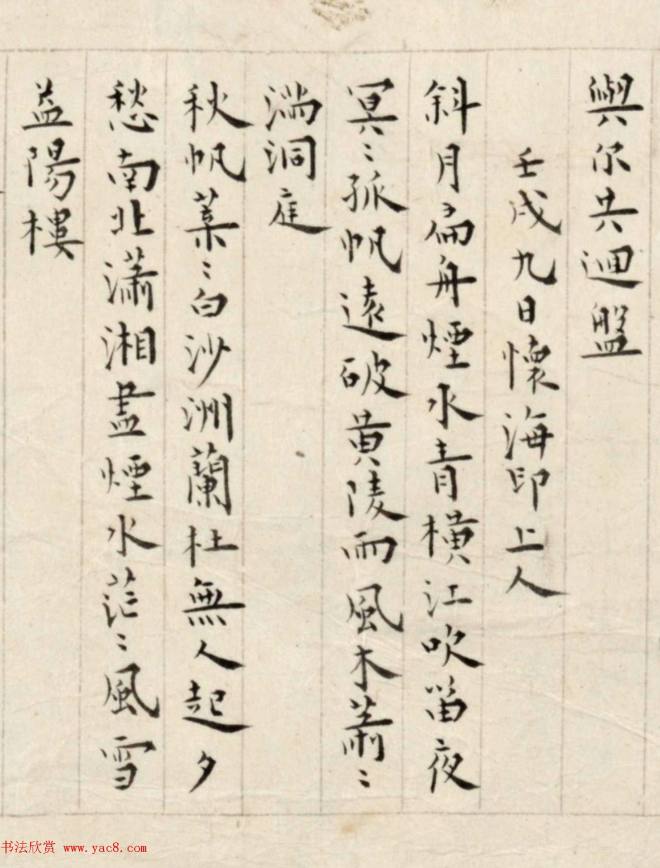 與爾共迴盤
壬戌九日懷海印上人
斜月扁舟煙水青橫江吹笛夜
冥〻孤帆遠破黃陵雨風木蕭〻
滿洞庭
秋帆葉〻白沙洲蘭杜無人起夕
愁南北瀟湘盡煙水茫〻風雪
益陽樓
书法欣赏 www.yac8.com